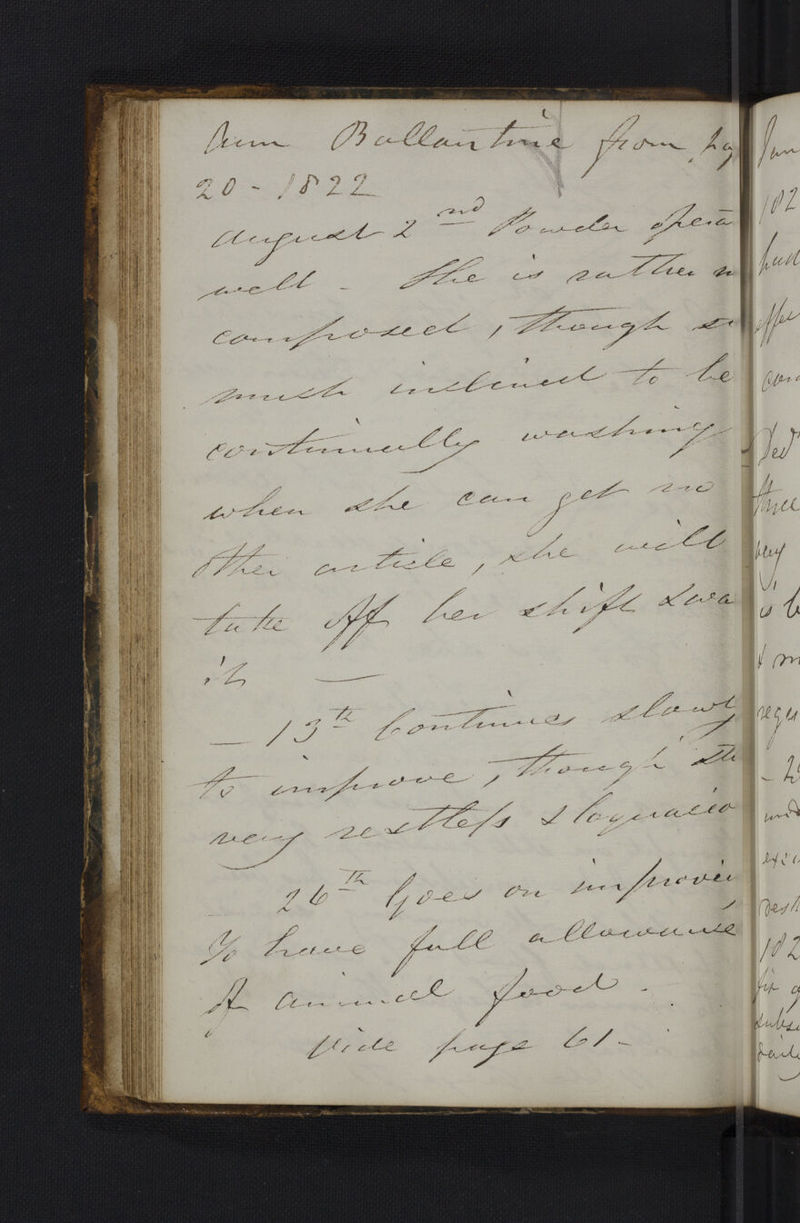 Ann Ballantine from pag
20 - 1822
August 2nd Powder opera
well - She is rather m
composed, though st
much inclined to be
continually washing
when she can get no
other article, she will
take off her shift & wa
it —
— 13th Continues slowl
to improve, though sti
very restless & loquacio
26th Goes on improvin
To have full allowance
of animal food -
Vide page 61 -
182
had
effec
con
three
very
is b
& m
rest
182
fit
subse
daily